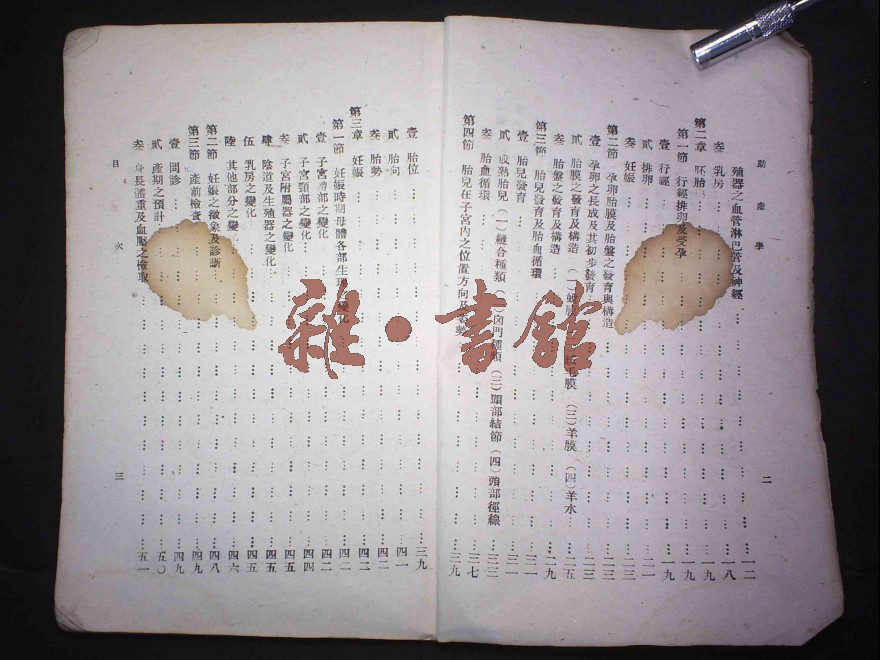 助產學
二
殖器之血管淋巴管及神經 一二
叄 乳房 一八
第二章 胚胎 一九
第一節 行經排卵及受孕 一九
壹 行經 一九
貳 排卵 二一
叄 妊娠 二三
第二節 孕卵胎膜及胎盤之發育與構造 二三
壹 孕卵之長成及其初步發育 二三
貳 胎膜之發育及構造 膜 (三)羊膜 (四)羊水 二五
叄 胎盤之發育及構造 二九
第三節 胎兒發育及胎血循環 三一
壹 胎兒發育 三一
貳 成熟胎兒 (一)縫合種類 囟門種類 (三)頭部結節 (四)頭部徑線 三三
叄 胎血循環 三七
第四節 胎兒在子宮內之位置方向及 勢 三九
壹 胎位 三九
貳 胎向 四一
叄 胎勢 四二
第三章 妊娠 四二
第一節 妊娠時期母體各部生理 變化 四二
壹 子宮體部之變化 四二
貳 子宮頸部之變化 四四
叄 子宮附屬器之變化 四五
肆 陰道及生殖器之變化 四五
伍 乳房之變化 四五
陸 其他部分之變化 四六
第二節 妊娠之徵象及診斷 四八
第三節 產前檢查 四九
壹 問診 四九
貳 產期之預計 五〇
叄 身長體重及血壓之檢取 五一
目次
三
雜·書館